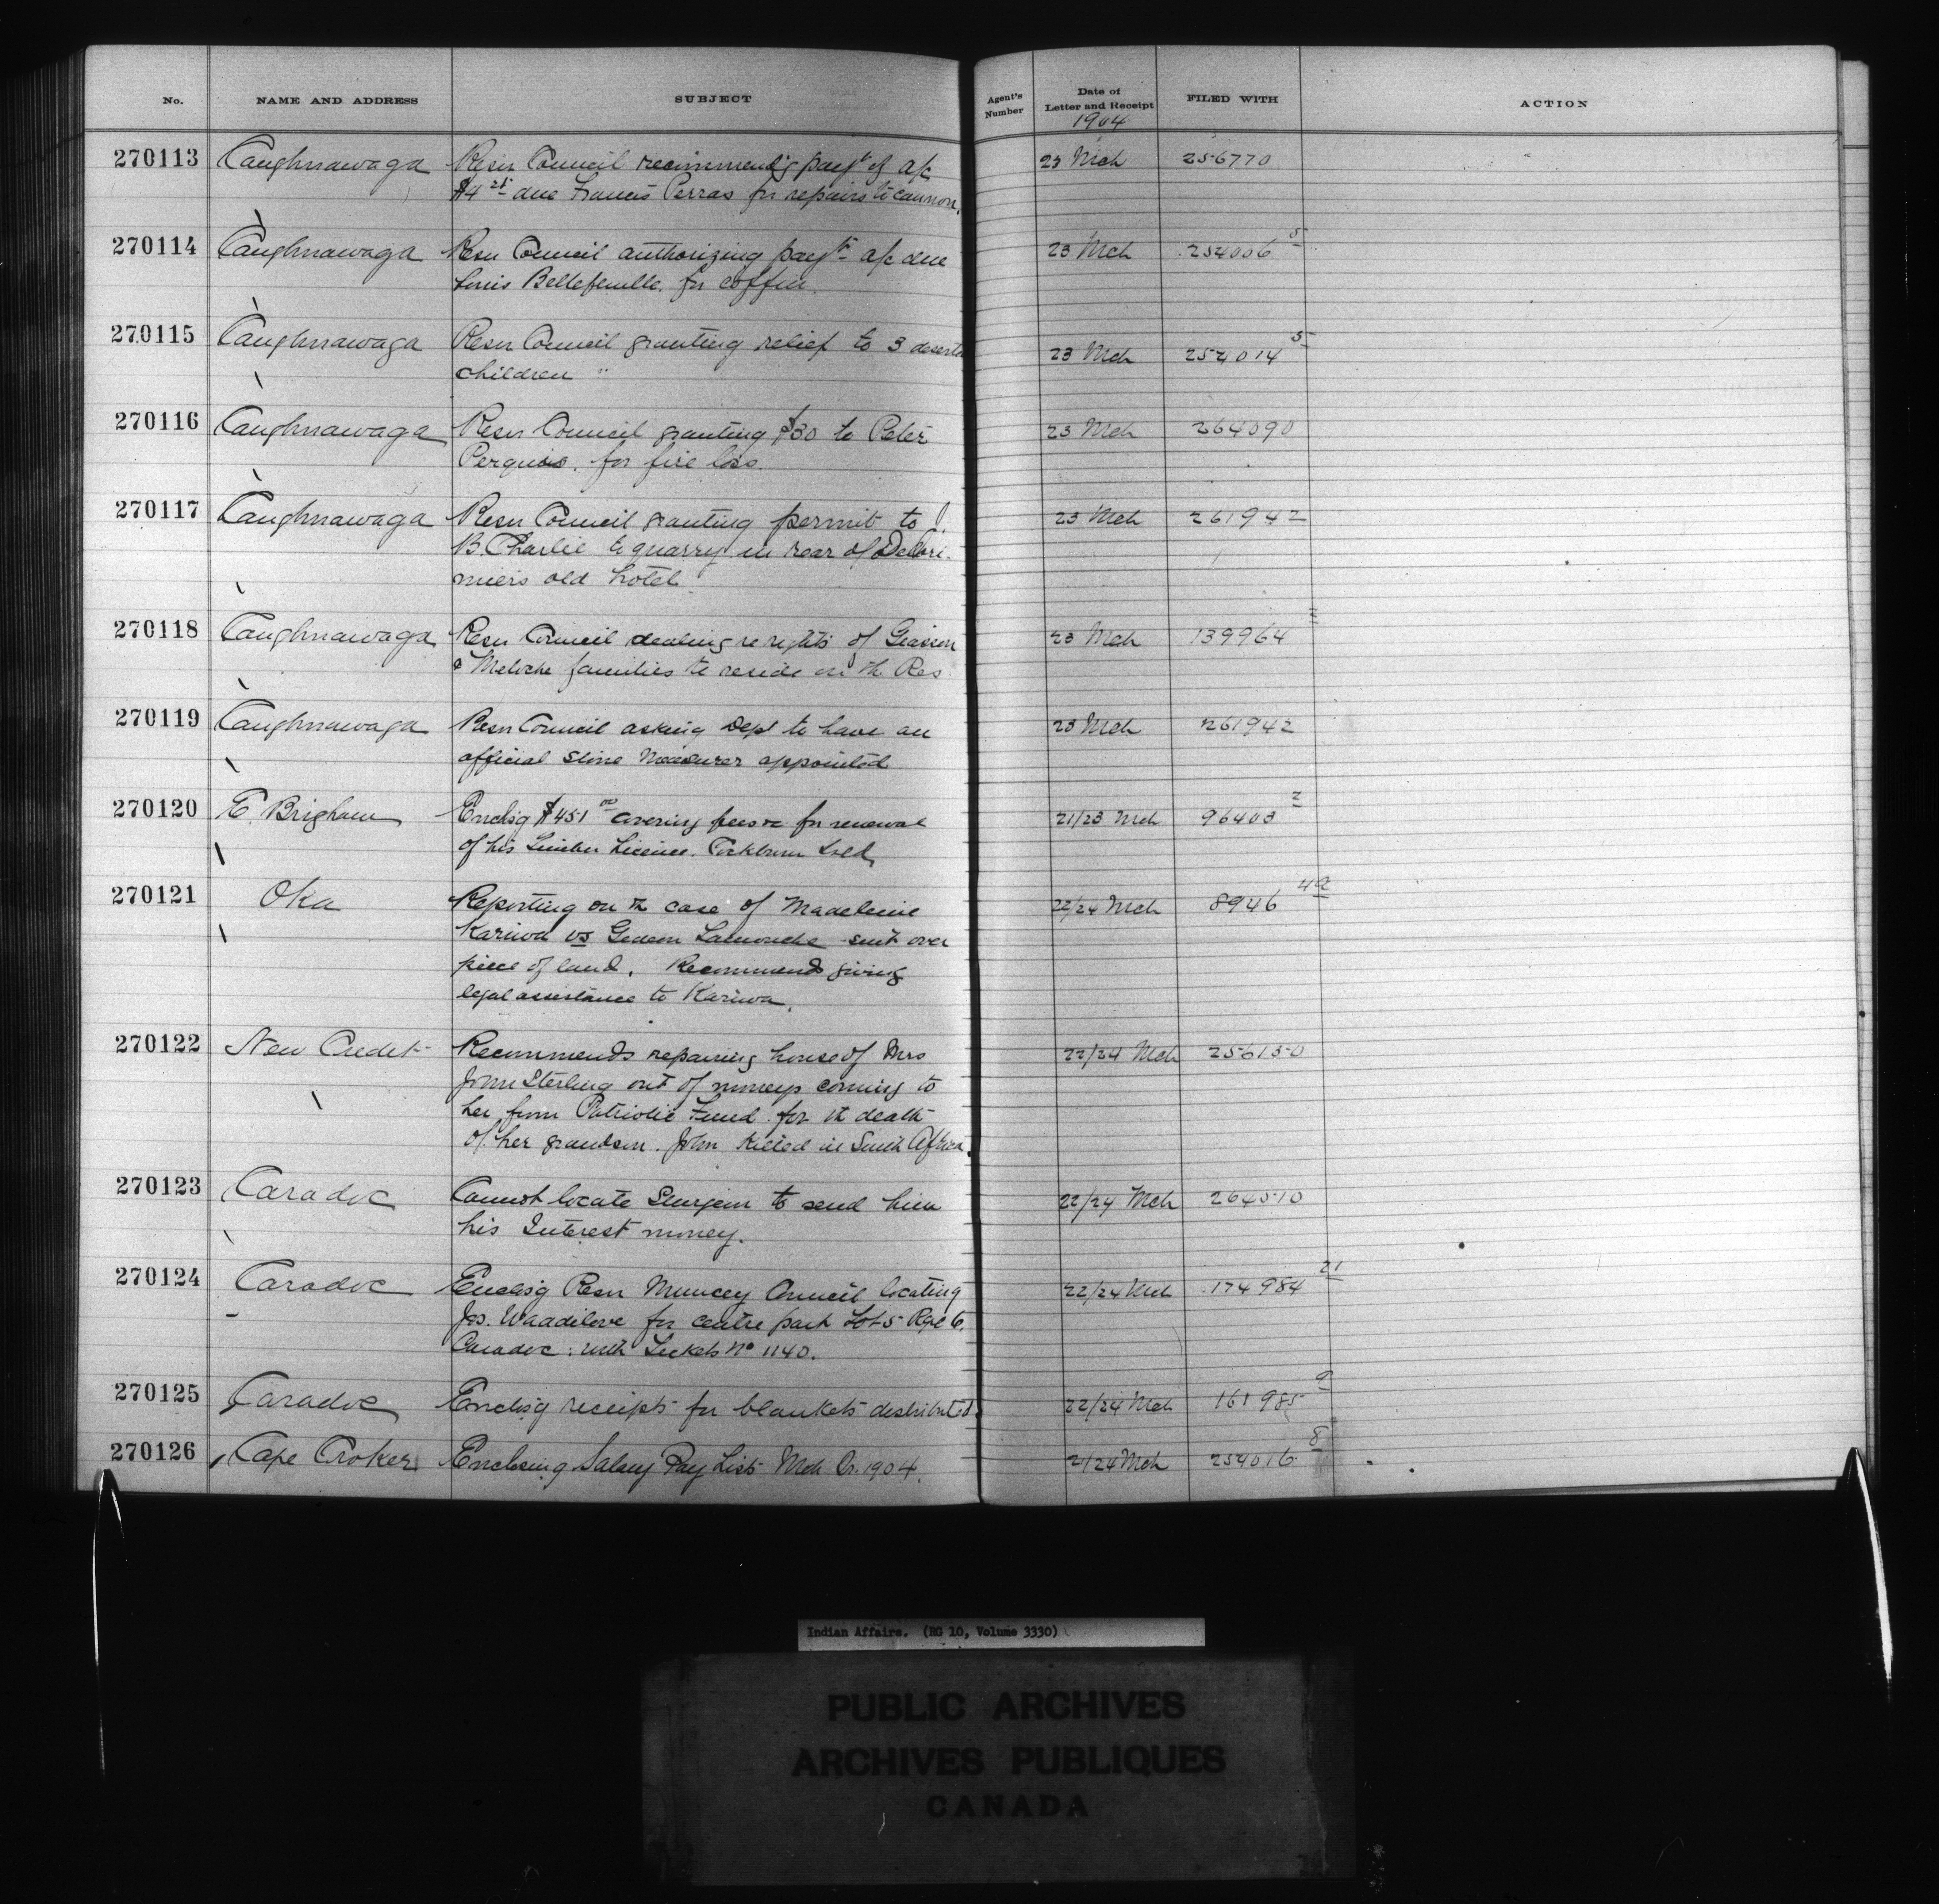 No. NAME AND ADDRESS SUBJECT Agent's Number Date of Letter and Receipt FILED WITH ACTION
1904
270113 Caughnawaga Resn Council recommend'g payt of a/c 23 Mch 256770
due Francis Perras for repairs to cannon.
270114 Caughnawaga Resn Council authorizing payt a/c due 23 Mch 254006 5
Louis Bellefeuille for coffin.
270115 Caughnawaga Resn Council granting relief to 3 23 Mch 254014 5
children
270116 Caughnawaga Resn Council granting $30 to Peter 23 Mch 264090
for fire loss.
270117 Caughnawaga Resn Council granting permit to J. 23 Mch 261942
B. Charlie to quarry in rear of Delori-
miers old hotel
270118 Caughnawaga Resn Council dealing re rights of Giasson 23 Mch 139964
& Meloche families to reside on th Res
270119 Caughnawaga Resn Council asking Dept to have an 23 Mch 261942
official Stone Measurer appointed
270120 E. Brigham Enclsg $451 00 covering fees &c for renewal 21/23 Mch 96403 2
of his Timber Licence.
270121 Oka Reporting on th case of Madeleine 22/24 Mch 8946
Kariwa vs Gedeon Lamouche suit over
piece of land. Recommends giving
legal assistance to Kariwa.
270122 New Credit Recommends repairing house of Mrs 22/24 Mch 256150
John Sterling out of moneys coming to
her from Patriotic Fund for th death
of her grandson John killed in South Africa.
270123 Caradoc Cannot locate Sturgeon to send him 22/24 Mch 264510
his Interest money.
270124 Caradoc Enclosg Resn Muncey Council locating 22/24 Mch 174984 21
Jos. Waddilove for centre part Lot 5 Rge 6,
Caradoc: with Tickets No 1140.
270125 Caradoc Enclosg receipts for blankets distributed. 22/24 Mch 161985 9
270126 Cape Croker Enclosing Salary Pay Lists Mch Qr. 1904. 21/24 Mch 254016 8
Indian Affairs. (RG 10, Volume 3330)
PUBLIC ARCHIVES
ARCHIVES PUBLIQUES
CANADA